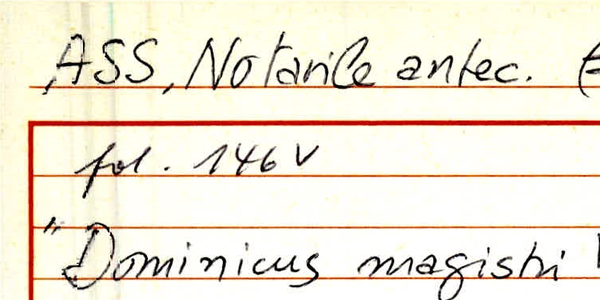 ASS, Notarile antec.
fol. 146 v
"Dominicus magistri